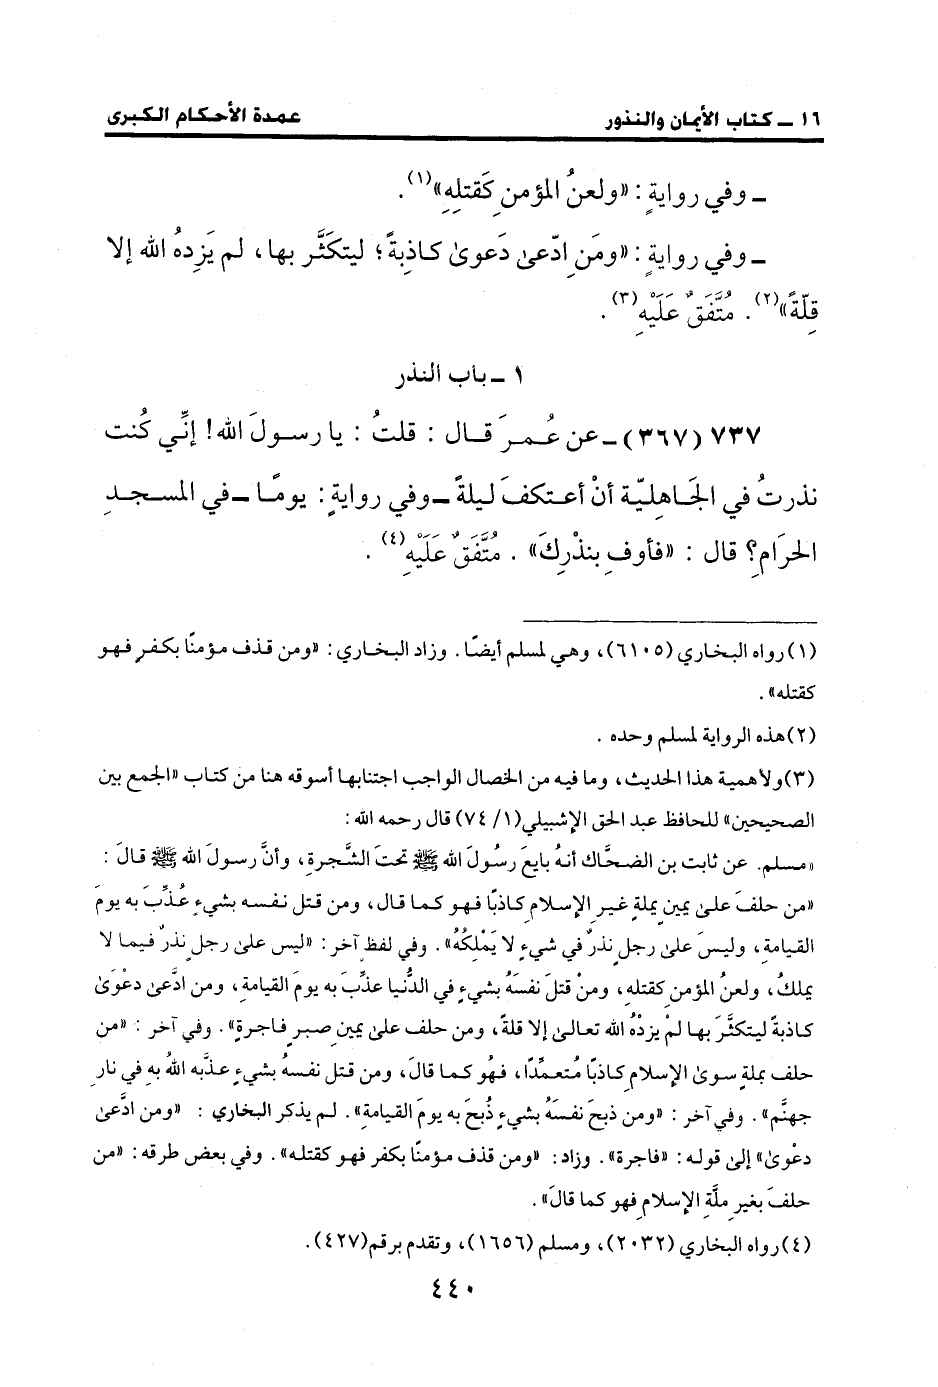 ١٦ ـ كتاب الأيمان والنذور عمدة الأحكام الكبرى
ـ وفي روايةٍ : «ولعنُ المؤمنِ كَقتلِهِ»(١).
ـ وفي روايةٍ : «ومَنِ ادّعى دَعوىٰ كاذبةً؛ ليتكَثَّر بها، لم يَزِدهُ الله إلا
قلّةً»(٢). مُتَّفَقٌ عَلَيْهِ(٣).
١ ـ باب النذر
٧٣٧ (٣٦٧) ـ عن عُمرَ قال : قلتُ : يا رسولَ الله! إنِّي كُنت
نذرتُ في الجَاهليّة أنْ أعتكفَ ليلةً ـ وفي روايةٍ : يومًا ـ في المسجدِ
الحرَامِ؟ قال : «فأوفِ بنذْرِكَ» . مُتَّفَقٌ عَلَيْهِ(٤) .
(١) رواه البخاري (٦١٠٥)، وهي لمسلم أيضًا. وزاد البخاري : «ومن قذف مؤمنًا بكفرٍ فهو
كقتله» .
(٢) هذه الرواية لمسلم وحده .
(٣) ولأهمية هذا الحديث، وما فيه من الخصال الواجب اجتنابها أسوقه هنا من كتاب «الجمع بين
الصحيحين» للحافظ عبد الحق الإشبيلي(١/ ٧٤) قال رحمه الله :
«مسلم. عن ثابت بن الضحَّاك أنهُ بايعَ رسُولَ الله ﷺ تحتَ الشَّجرةِ، وأنَّ رسولَ الله ﷺ قالَ :
«من حلفَ علىٰ يمينٍ بملةٍ غيرِ الإسلامِ كاذبًا فهو كما قال، ومن قتل نفسه بشيءٍ عُذِّبَ به يومَ
القيامةِ، وليسَ علىٰ رجلٍ نذرٌ في شيءٍ لا يَمْلِكُهُ». وفي لفظٍ آخر : «ليس علىٰ رجلٍ نذرٌ فيما لا
يملكُ، ولعنُ المؤمنِ كقتلهِ، ومنْ قتلَ نفسَهُ بشيءٍ في الدُّنيا عذِّبَ به يومَ القيامةِ، ومن ادَّعىٰ دعْوَىٰ
كاذبةً ليتكثَّرَ بها لمْ يزدْهُ الله تعالىٰ إلا قلةً، ومن حلف علىٰ يمينِ صبرٍ فاجرةٍ». وفي آخر : «من
حلف بملةٍ سوىٰ الإسلامِ كاذبًا مُتعمِّدًا، فهُو كما قالَ، ومن قتل نفسهُ بشيءٍ عذَّبه اللهُ به في نارِ
جهنَّم» . وفي آخر : «ومن ذبحَ نفسَهُ بشيءٍ ذُبحَ به يومَ القيامةِ». لم يذكر البخاري : «ومن ادَّعىٰ
دعْوىٰ» إلىٰ قوله : «فاجرة» . وزاد : «ومن قذف مؤمنًا بكفر فهو كقتله» . وفي بعض طرقه : «من
حلفَ بغيرِ ملَّةِ الإسلامِ فهو كما قالَ» .
(٤) رواه البخاري (٢٠٣٢)، ومسلم (١٦٥٦)، وتقدم برقم(٤٢٧).
٤٤٠